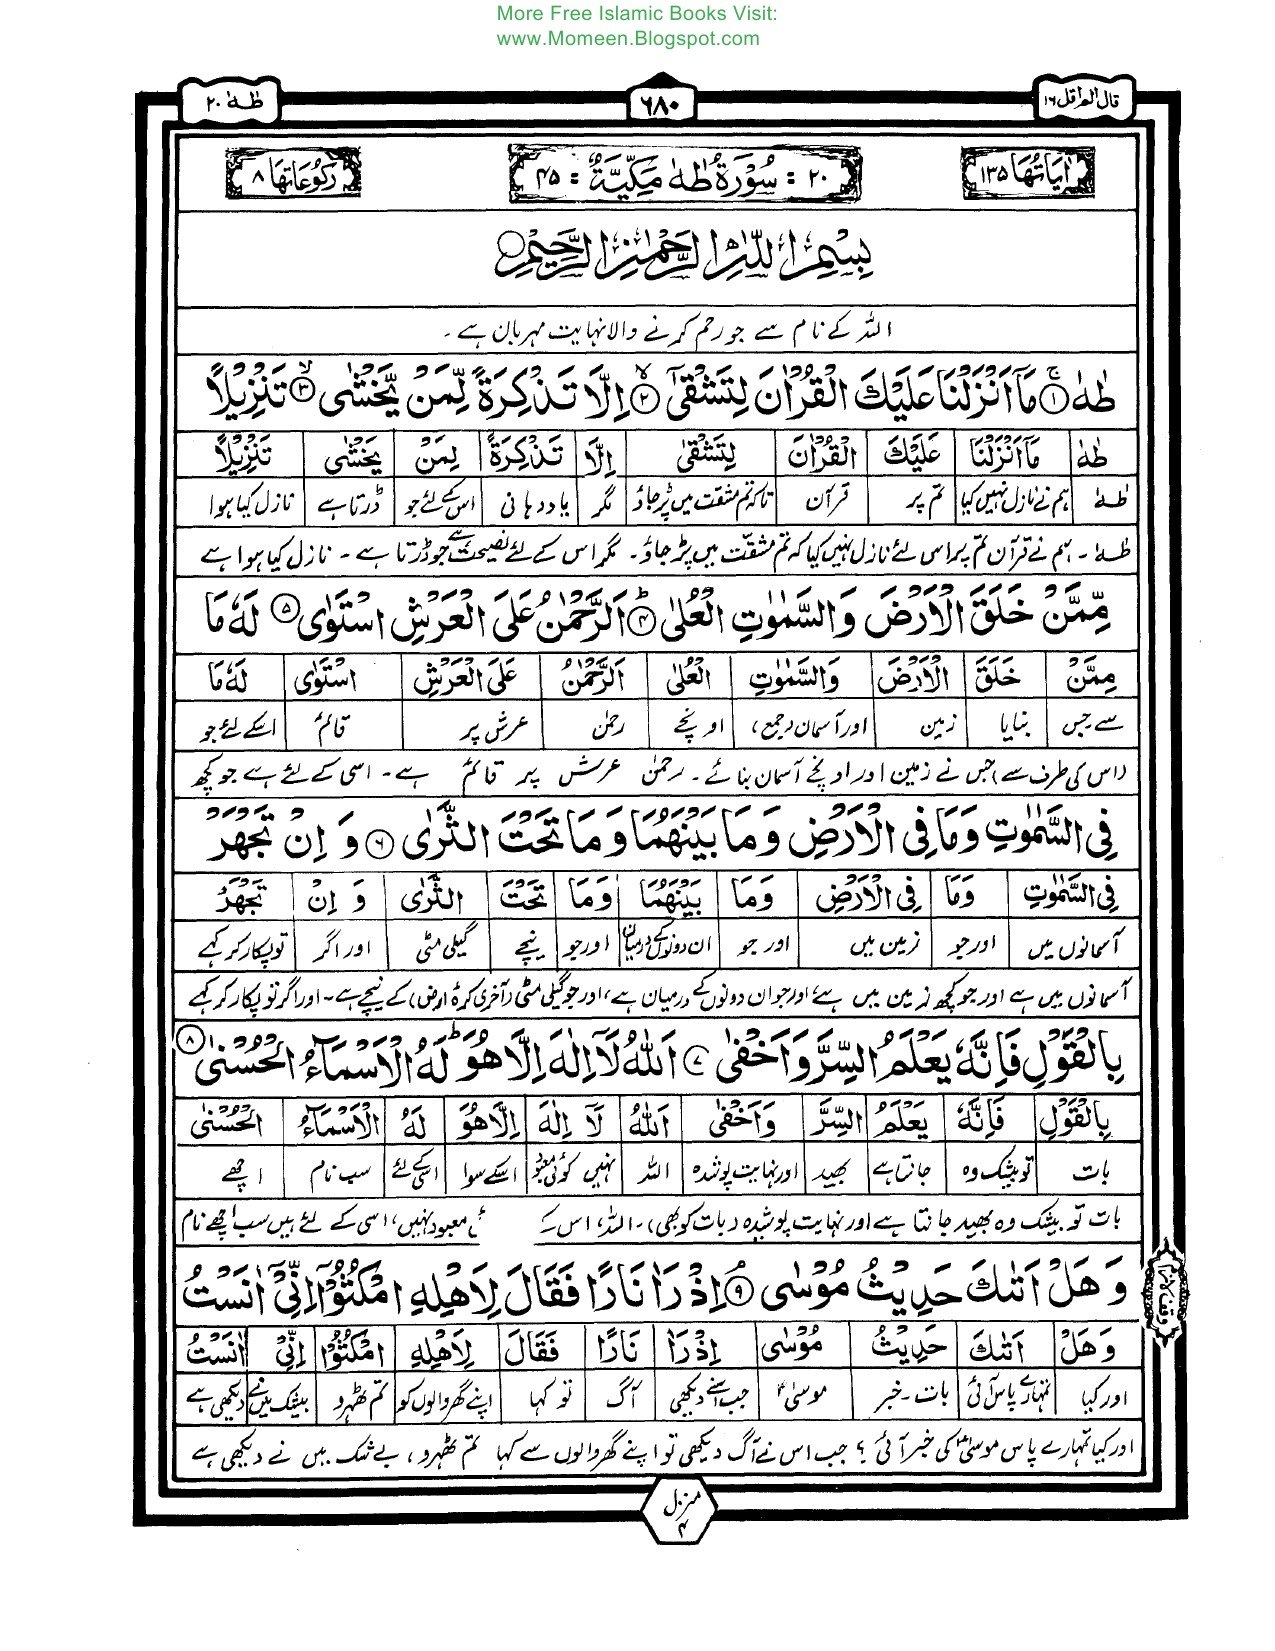 More Free Islamic Books Visit:
www.Momeen.Blogspot.com
قال الم اقل ۱۶ ۶۸۰ طٰهٰ ۲۰
اٰيَاتُهَا ۱۳۵ ۲۰ : سُوْرَةُ طٰهٰ مَكِّيَّةٌ : ۴۵ رَكُوْعَاتُهَا ۸
بِسْمِ اللّٰهِ الرَّحْمٰنِ الرَّحِيْمِ
اللہ کے نام سے جو رحم کرنے والا نہایت مہربان ہے ۔
طٰهٰ ۱ مَاۤ اَنْزَلْنَا عَلَيْكَ الْقُرْاٰنَ لِتَشْقٰۤى ۲ اِلَّا تَذْكِرَةً لِّمَنْ يَّخْشٰى ۳ تَنْزِيْلًا
طٰهٰ مَاۤ اَنْزَلْنَا عَلَيْكَ الْقُرْاٰنَ لِتَشْقٰى اِلَّا تَذْكِرَةً لِمَنْ يَخْشٰى تَنْزِيْلًا
طٰہٰ ہم نے نازل نہیں کیا تم پر قرآن تاکہ تم مشقت میں پڑ جاؤ مگر یاد دہانی اس کے لئے جو ڈرتا ہے نازل کیا ہوا
طٰہٰ ۔ ہم نے قرآن تم پر اس لئے نازل نہیں کیا کہ تم مشقّت میں پڑ جاؤ۔ مگر اس کے لئے نصیحت ہے جو ڈرتا ہے ۔ نازل کیا ہوا ہے
مِّمَّنْ خَلَقَ الْاَرْضَ وَالسَّمٰوٰتِ الْعُلٰى ۴ اَلرَّحْمٰنُ عَلَى الْعَرْشِ اسْتَوٰى ۵ لَهٗ مَا
مِمَّنْ خَلَقَ الْاَرْضَ وَالسَّمٰوٰتِ الْعُلٰى اَلرَّحْمٰنُ عَلَى الْعَرْشِ اسْتَوٰى لَهٗ مَا
سے جس بنایا زمین اور آسمان (جمع) اونچے رحمٰن عرش پر قائم اسکے لئے جو
(اس کی طرف سے) جس نے زمین اور اونچے آسمان بنائے ۔ رحمٰن عرش پر قائم ہے۔ اسی کے لئے ہے جو کچھ
فِى السَّمٰوٰتِ وَمَا فِى الْاَرْضِ وَمَا بَيْنَهُمَا وَمَا تَحْتَ الثَّرٰى ۶ وَاِنْ تَجْهَرْ
فِى السَّمٰوٰتِ وَمَا فِى الْاَرْضِ وَمَا بَيْنَهُمَا وَمَا تَحْتَ الثَّرٰى وَاِنْ تَجْهَرْ
آسمانوں میں اور جو زمین میں اور جو ان دونوں کے درمیان اور جو نیچے گیلی مٹی اور اگر تو پکار کر کہے
آسمانوں میں ہے اور جو کچھ زمین میں ہے، اور جو ان دونوں کے درمیان ہے، اور جو گیلی مٹی (آخری کرۂ ارض) کے نیچے ہے۔ اور اگر تو پکار کر کہے
بِالْقَوْلِ فَاِنَّهٗ يَعْلَمُ السِّرَّ وَاَخْفٰى ۷ اَللّٰهُ لَاۤ اِلٰهَ اِلَّا هُوَ لَهُ الْاَسْمَآءُ الْحُسْنٰى ۸
بِالْقَوْلِ فَاِنَّهٗ يَعْلَمُ السِّرَّ وَاَخْفٰى اَللّٰهُ لَاۤ اِلٰهَ اِلَّا هُوَ لَهُ الْاَسْمَآءُ الْحُسْنٰى
بات تو بیشک وہ جانتا ہے بھید اور نہایت پوشدہ اللہ نہیں کوئی معبود اسکے سوا اسی کے لئے سب نام اچھے
بات تو بیشک وہ بھید جانتا ہے اور نہایت پوشیدہ (بات کو بھی) ۔ اللہ، اس کے معبود نہیں، اسی کے لئے ہیں سب اچھے نام
وَهَلْ اَتٰىكَ حَدِيْثُ مُوْسٰى ۹ اِذْ رَاٰ نَارًا فَقَالَ لِاَهْلِهِ امْكُثُوْۤا اِنِّىْۤ اٰنَسْتُ
وَهَلْ اَتٰىكَ حَدِيْثُ مُوْسٰى اِذْ رَاٰ نَارًا فَقَالَ لِاَهْلِهِ امْكُثُوْۤا اِنِّىْ اٰنَسْتُ
اور کیا تمہارے پاس آئی بات ۔ خبر موسیٰؑ جب اسنے دیکھی آگ تو کہا اپنے گھر والوں کو تم ٹھہرو بیشک میں نے دیکھی ہے
اور کیا تمہارے پاس موسیٰؑ کی خبر آئی ؟ جب اس نے آگ دیکھی تو اپنے گھر والوں سے کہا تم ٹھہرو ، بے شک میں نے دیکھی ہے
منزل ۴